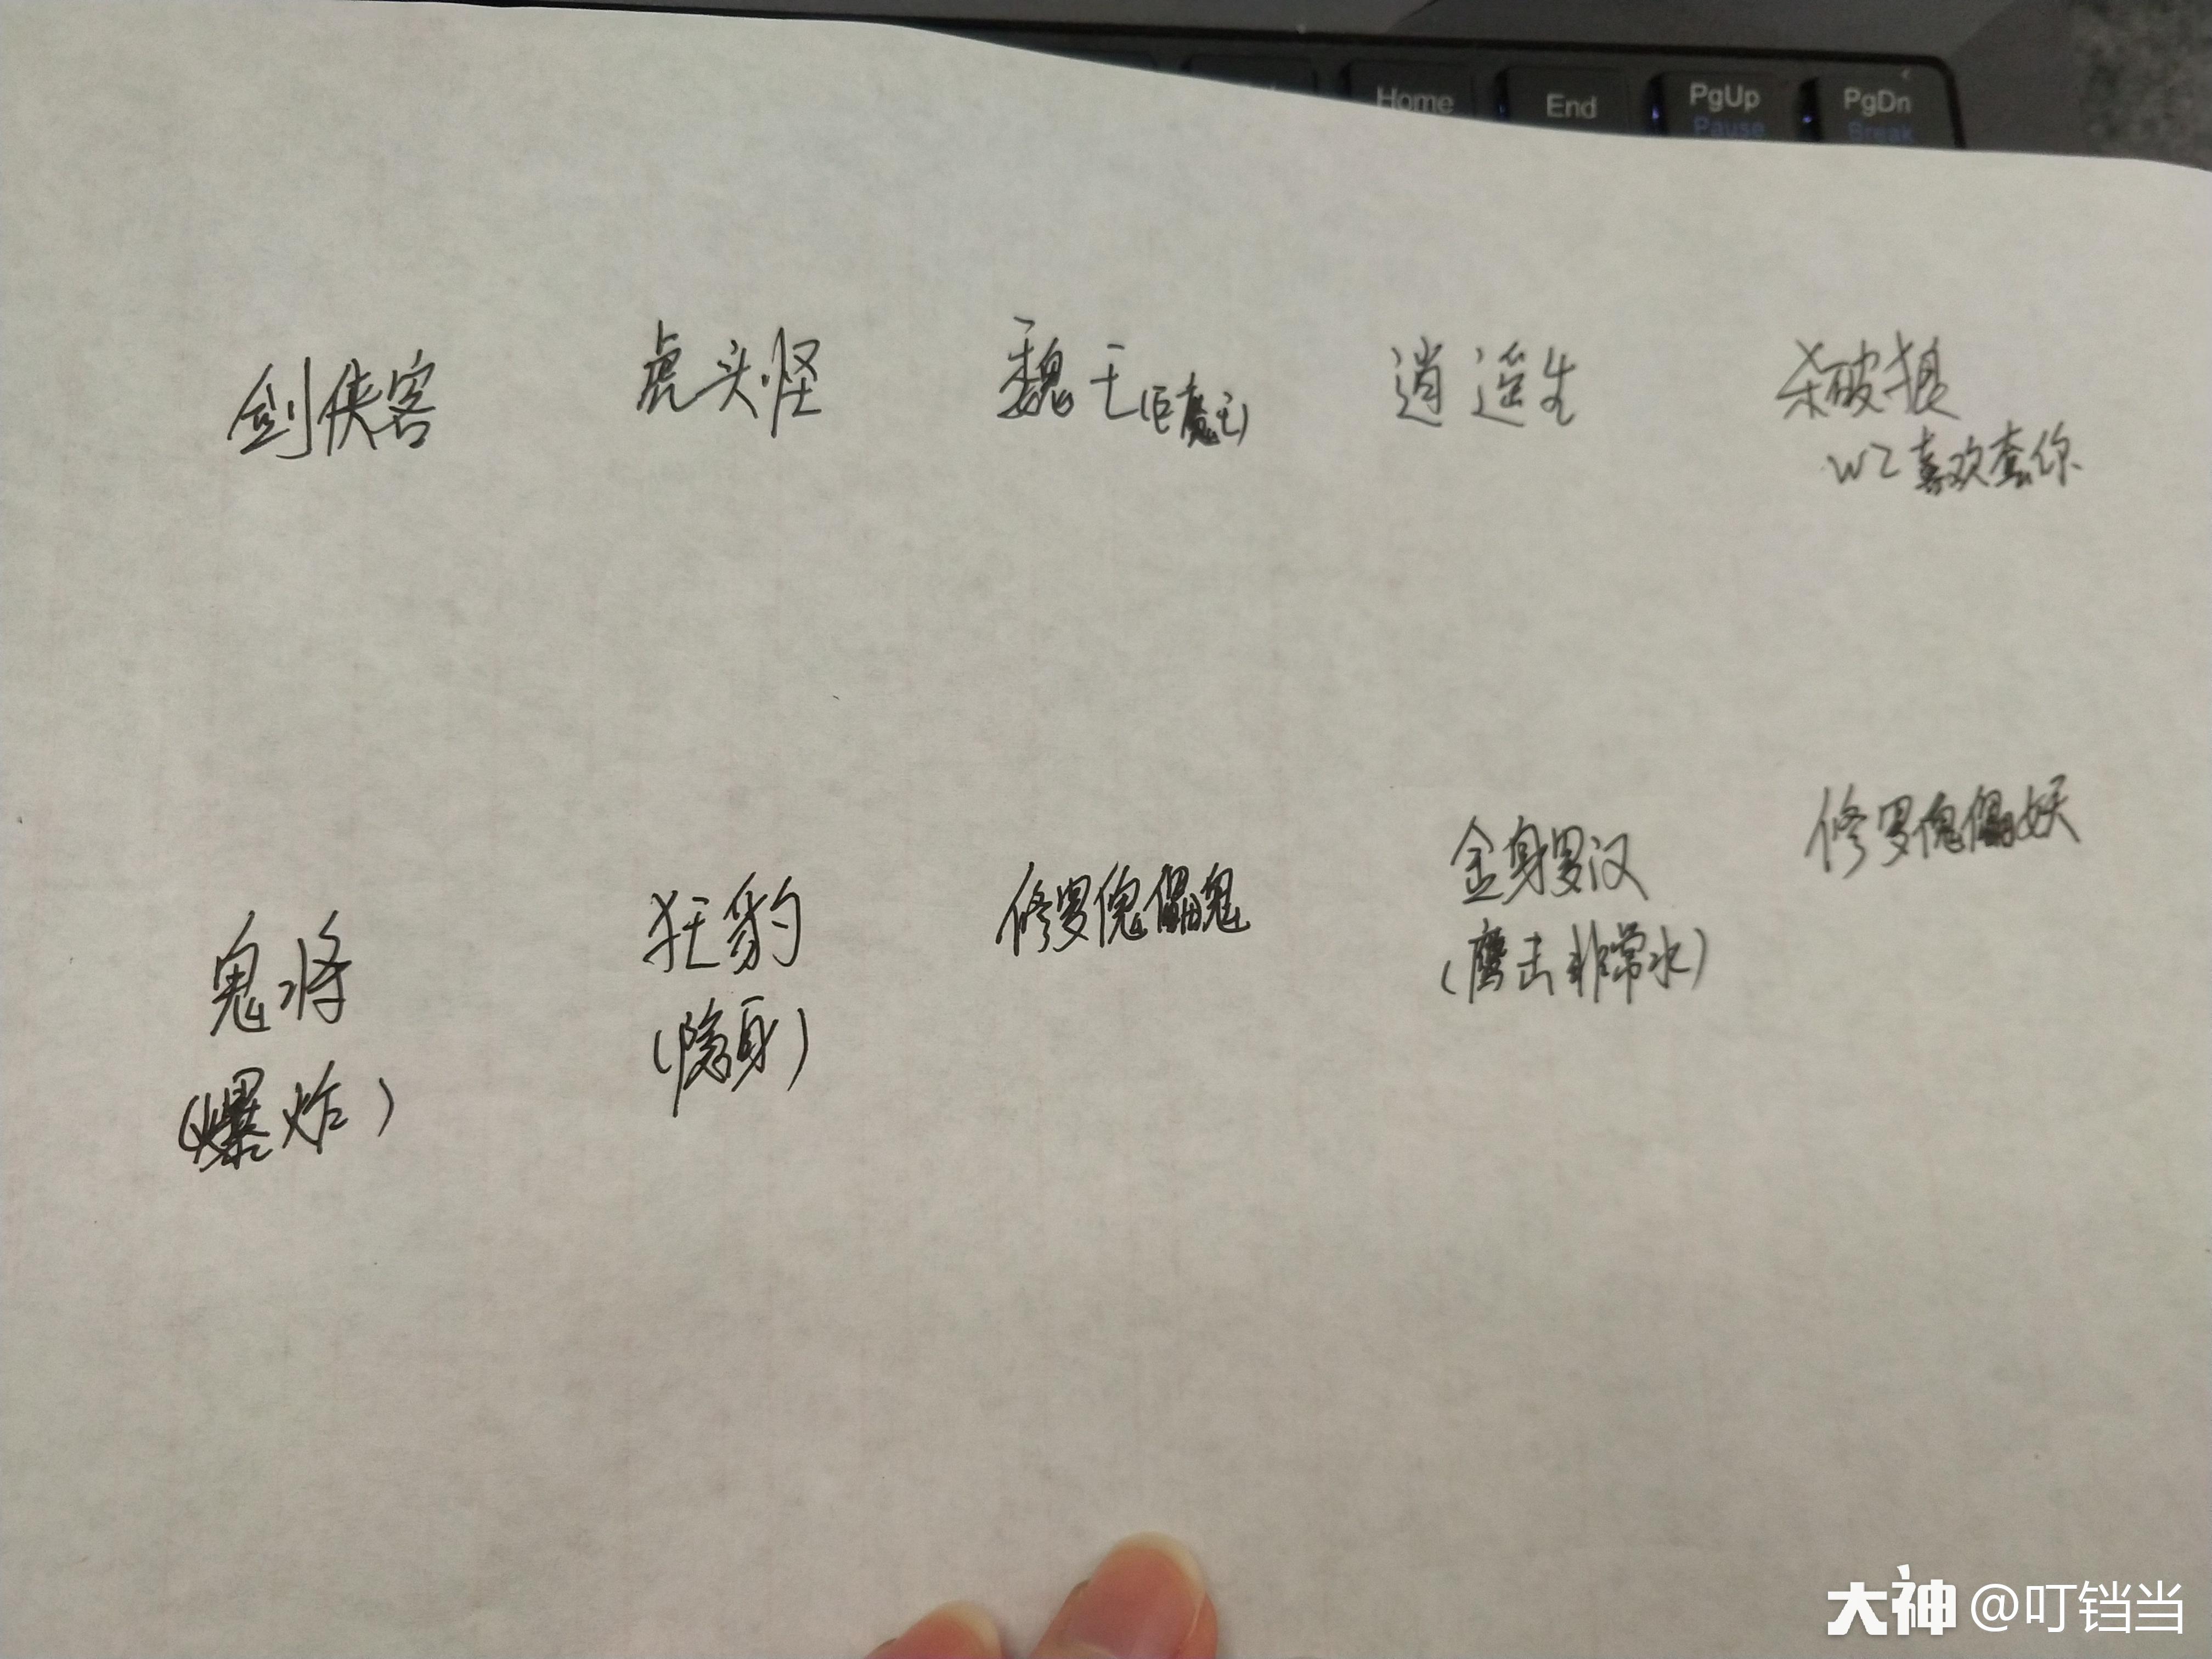 Home End PgUp PgDn
Pause Break
剑侠客 虎头怪 魏王(巨魔王) 逍遥生 杀破狼
WZ喜欢查你
鬼将 狂豹 修罗傀儡鬼 金身罗汉 修罗傀儡妖
(爆炸) (隐身) (鹰击非常水)
大神 @叮铛当